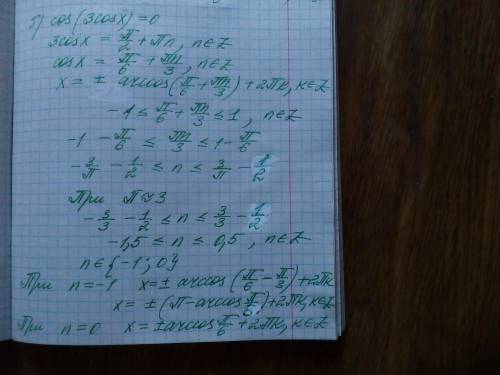 5) cos(3cosx)=0
3cosx = π/2 + πn, n∈Z
cosx = π/6 + πn/3, n∈Z
x = ± arccos(π/6 + πn/3) + 2πk, k∈Z
-1 ≤ π/6 + πn/3 ≤ 1, n∈Z
-1 - π/6 ≤ πn/3 ≤ 1 - π/6
-3/π - 1/2 ≤ n ≤ 3/π - 1/2
При π≈3
-3/3 - 1/2 ≤ n ≤ 3/3 - 1/2
-1,5 ≤ n ≤ 0,5, n∈Z
n∈{-1; 0}
При n=-1 x=± arccos(π/6 - π/3) + 2πk
x = ±(π - arccos π/6) + 2πk, k∈Z
При n=0 x = ± arccos π/6 + 2πk, k∈Z